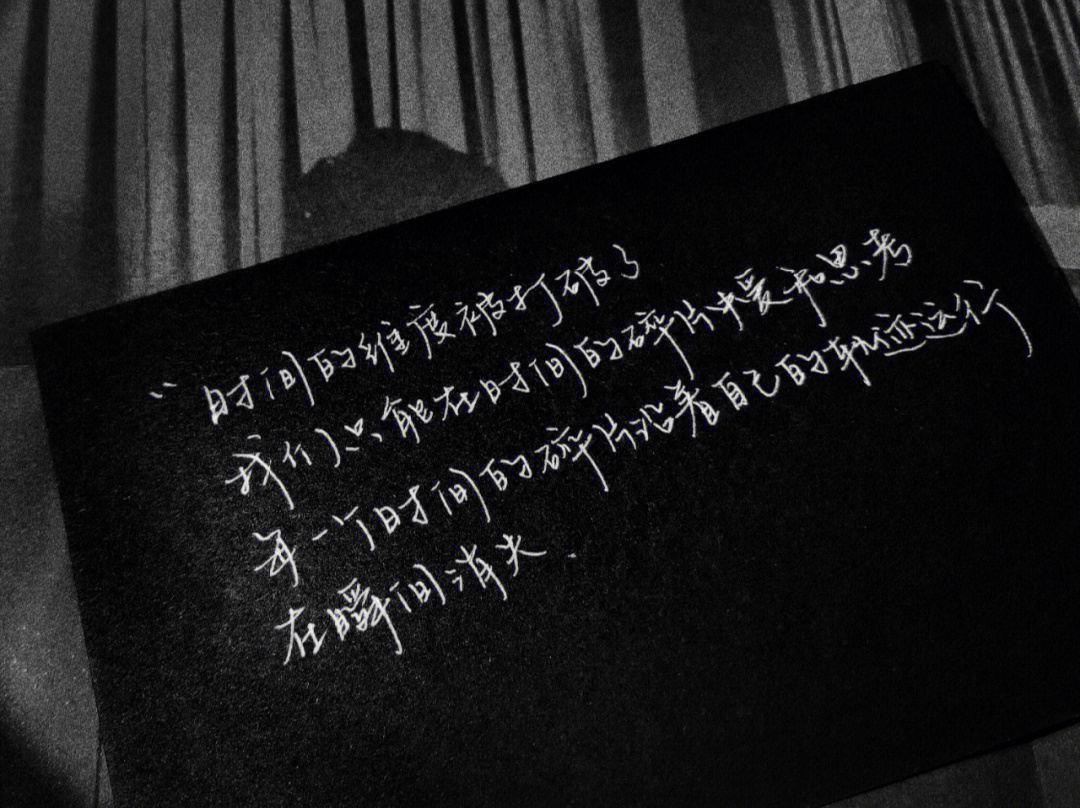 “时间的维度被打破了
我们只能在时间的碎片中爱和思考
每一个时间的碎片沿着自己的轨迹运行
在瞬间消失.